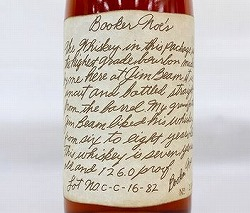 Booker Noe's
This Whiskey in this package
the highest grade bourbon made
me here at Jim Beam. It
and bottled straight
from the barrel. My gran
Jim Beam liked his whis
from six to eight years
This whiskey is seven ye
and 126.0 proof
Lot No C-C-16-82
Booker
No